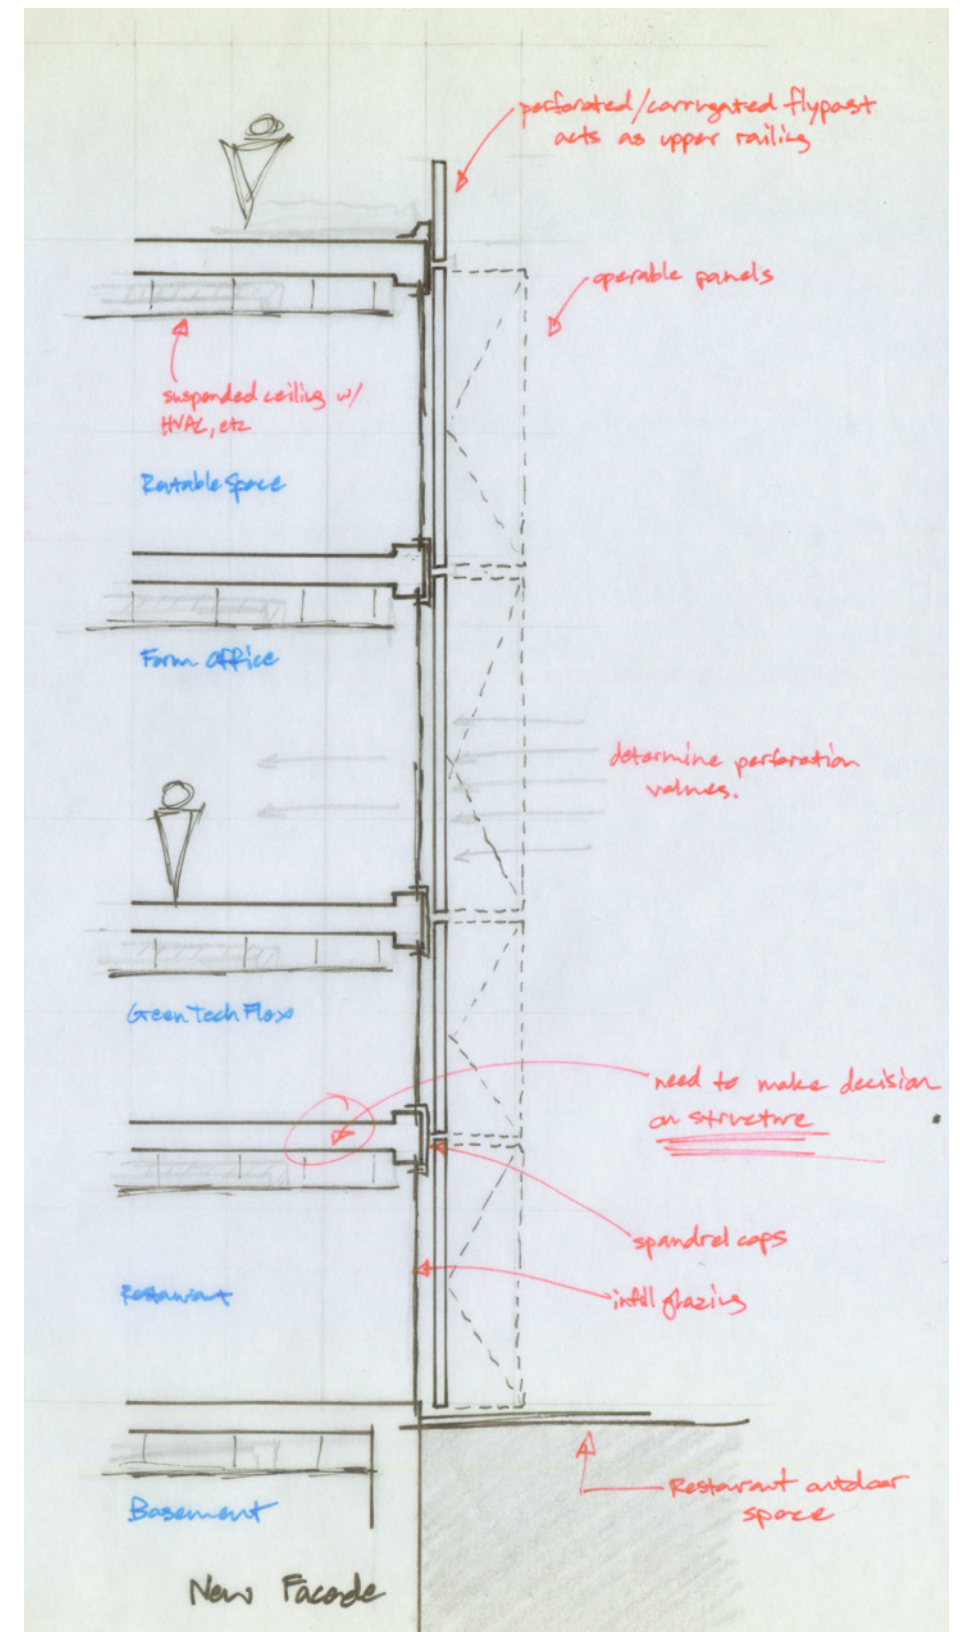 perforated/corrugated flypast
acts as upper railing
operable panels
suspended ceiling w/
HVAC, etc
Rentable Space
Farm office
determine perforation
values.
Green Tech Flex
need to make decision
on structure
spandrel caps
infill glazing
Restaurant
Restaurant outdoor
space
Basement
New Facade